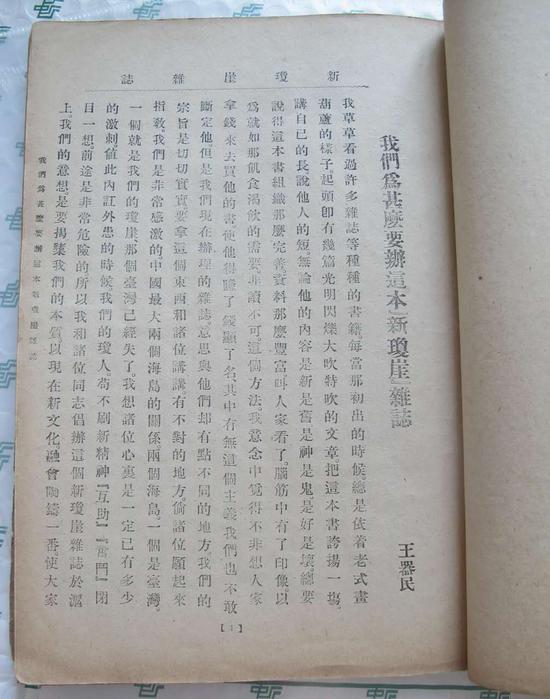 新瓊崖雜誌
我們爲甚麼要辦這「本」新瓊崖」雜誌
王器民
我草草看過許多雜誌等種種的書籍每當那初出的時候。總是依着老式畫
葫蘆的樣子。起頭卽有幾篇光明閃爍大吹特吹的文章把這本書誇揚一塲。
講自己的長說他人的短無論他的內容是新是舊是神是鬼是好是壞。總要
說得這本書組織那麼完善。資料那麼豐富叫人家看了。腦筋中有了印像。以
爲就如那飢食渴飲的需要。非讀不可。這個方法。我意念中覺得不非想人家
拿錢來去買他的書使他得賺了錢顯了名其中有無這個主義我們也不敢
斷定他。但是我們現在辦理的雜誌意思與他們却有點不同的地方。我們的
宗旨是切切實實要拿這個東西和諸位講講。有不對的地方。倘諸位願起來
指教。我們是非常感激的。中國最大兩個海島的關係兩個海島。一個是臺灣。
一個就是我們的瓊崖。那個臺灣已經失了。我想諸位心裏是一定已有多少
的激刺。值此內訌外患的時候我們的瓊人。苟不刷新精神『互助』『奮鬥』閉
目一想。前途是非常危險的。所以我和諸位同志倡辦這個新瓊崖雜誌於滬
上。我們的意想是要揭櫫我們的本質。以現在新文化。融會陶鑄一番。使大家
我們爲甚麼要辦這本新瓊崖雜誌
【1】